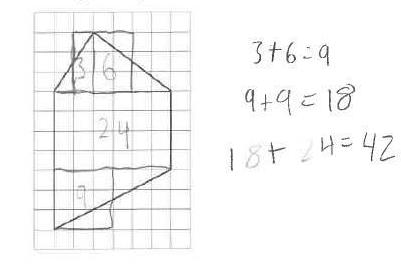 3 6
24
9
3+6=9
9+9=18
18+24=42